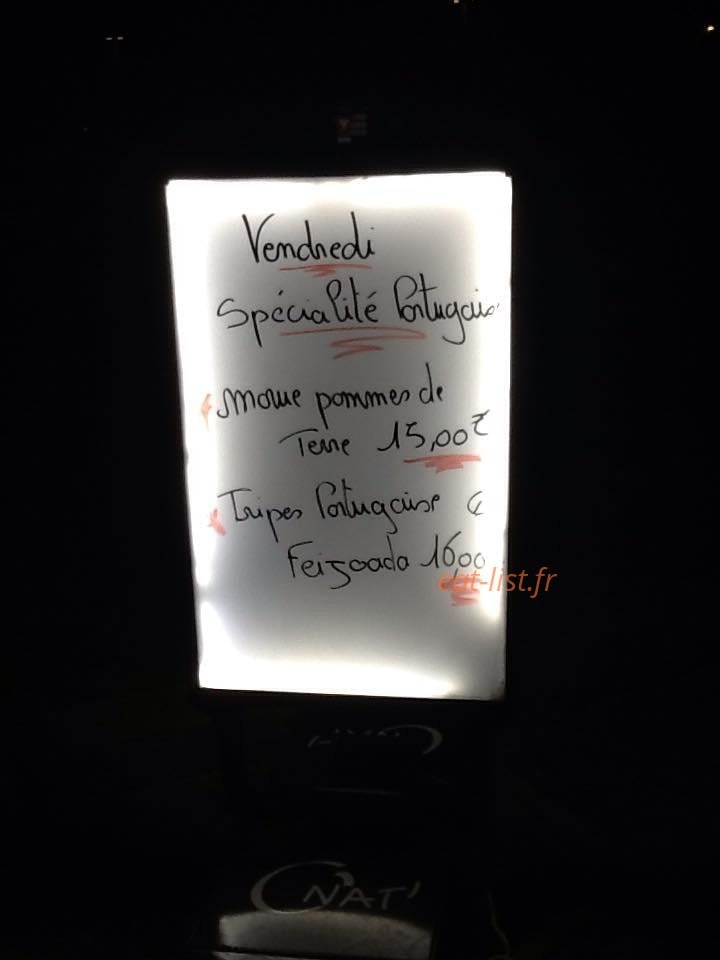 Vendredi
Spécialité Portugais
Morue pommes de
Terre 15,00€
Tripes Portugaise
Feijoada 16,00
eat-list.fr
NAT'